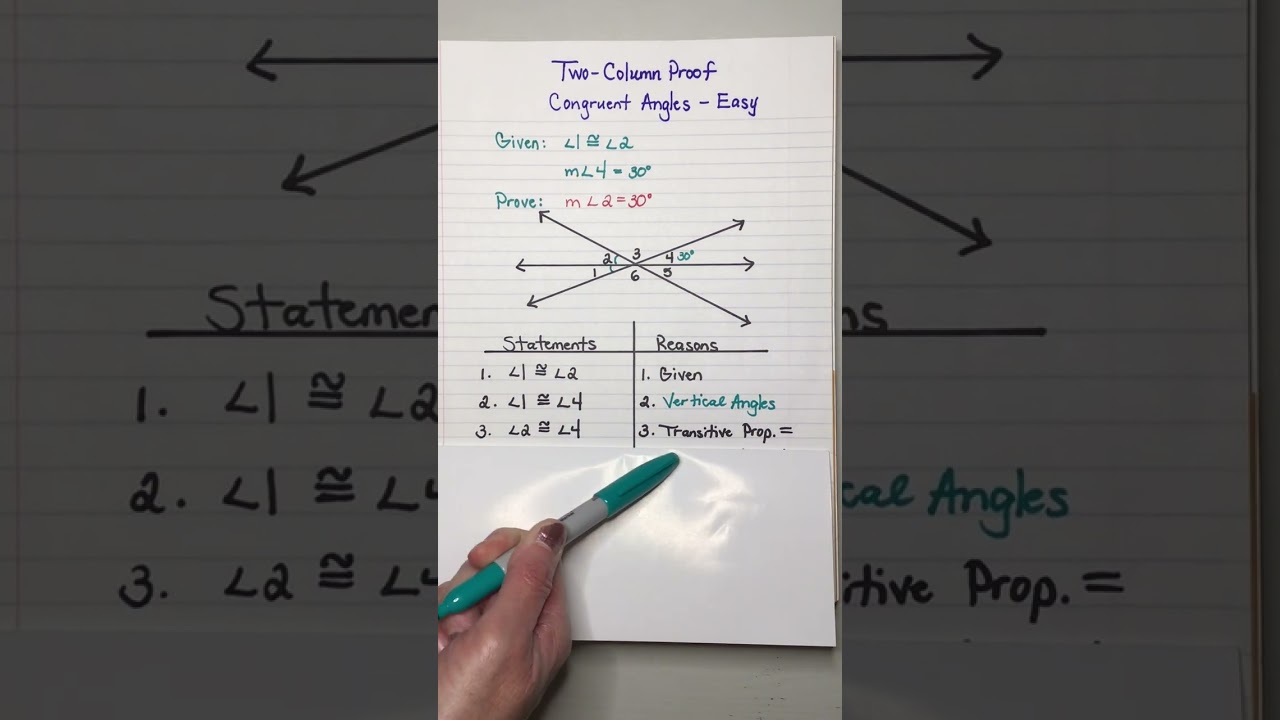 Two-Column Proof
Congruent Angles - Easy
Given: ∠1 ≅ ∠2
m∠4 = 30°
Prove: m∠2 = 30°
3
2 4 30°
1 6 5
Statements Reasons
1. ∠1 ≅ ∠2 1. Given
2. ∠1 ≅ ∠4 2. Vertical Angles
3. ∠2 ≅ ∠4 3. Transitive Prop. =